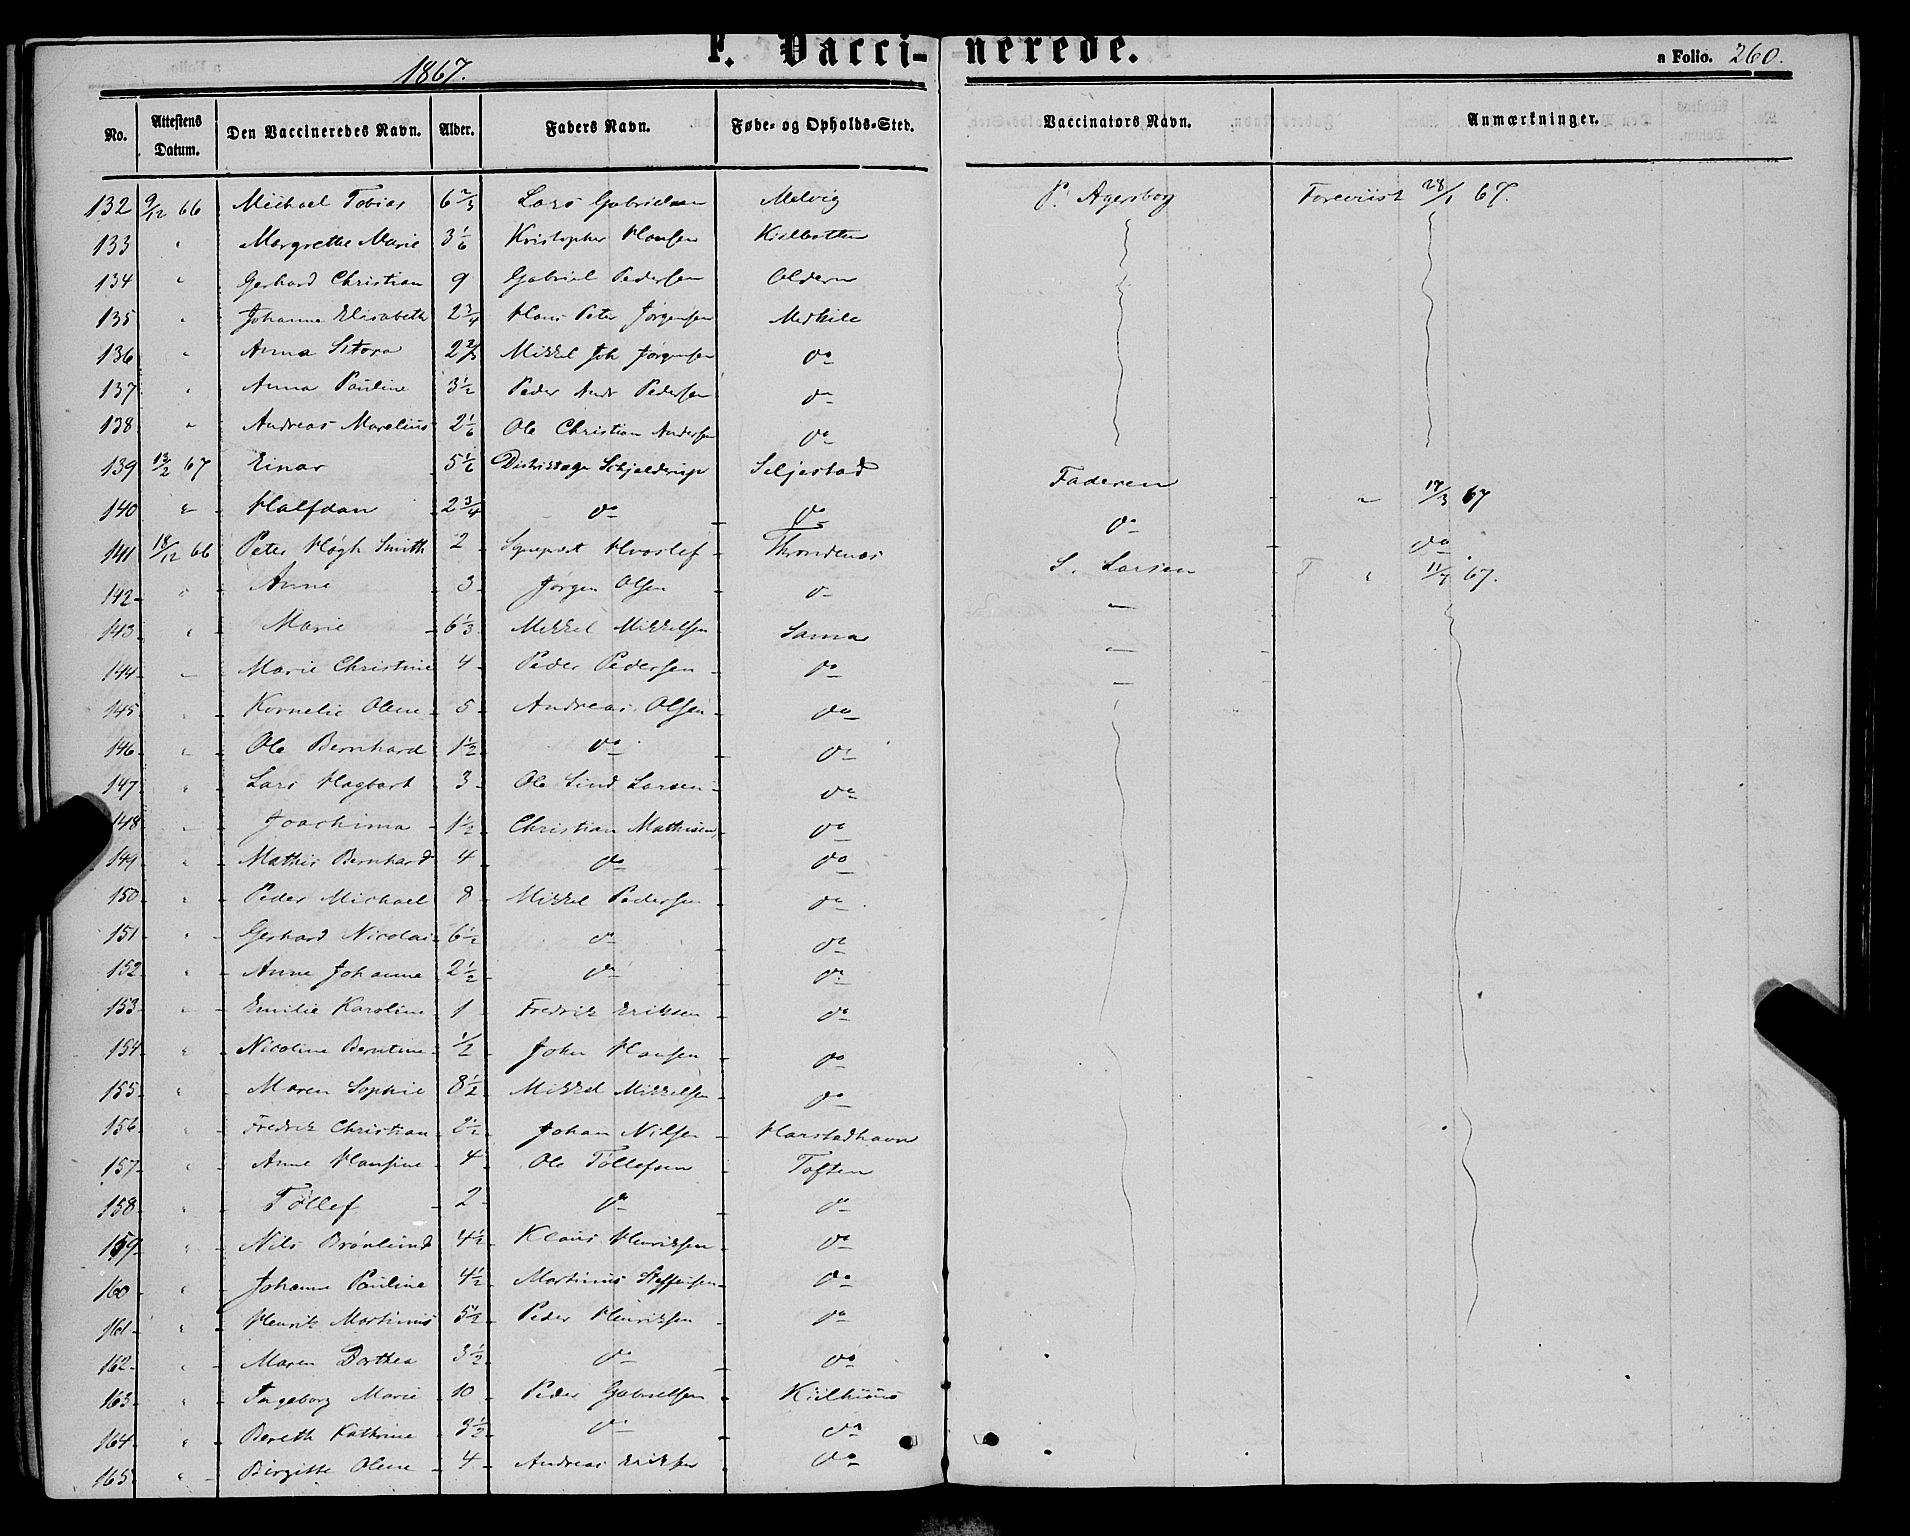 F. Vacci-nerede.
1867.
a Folio. 260.
No. Attestens Datum. Den Vaccineredes Navn. Alder. Faders Navn. Føde- og Opholds-Sted. Vaccinators Navn. Anmærkninger.
132 9/12 66 Michael Tobias 6 2/3 Lars Gabrielsen Melvig P. Agersborg Foreviist 28/1 67.
133 " Margrethe Marie 3 1/6 Kristopher Hansen Kielbotten
134 " Gerhard Christian 9 Gabriel Pedersen Oldern
135 " Johanna Elisabeth 2 3/4 Hans Peter Jørgensen Medkile
136 " Anna 2 2/3 Mikkel Joh Jørgensen do
137 " Anna Pauline 3 1/2 Peder Andr Pedersen do
138 " Andreas Marelius 2 1/6 Ole Christian Andersen do
139 12/2 67 Einar 5 1/6 Schjelderup Seljestad Faderen " 17/3 67
140 " Halfdan 2 3/4 do do do do
141 18/12 66 Peter Høgh Smith 2 Sognepræst Hvoslef Throndenæs S. Larsen F " 11/4 67.
142 " Anne 3 Jørgen Olsen do —
143 " Marie 6 1/3 Mikkel Mikkelsen Sama —
144 " Marie Christine 4 Peder Pedersen do —
145 " Kornelie Olene 5 Andreas Olsen do
146 " Ole Bernhard 1 1/2 do do
147 " Lars Hagbart 3 Ole Lind Larsen do
148 " Joachima 1 1/2 Christian Mathisen do
149 " Mathis Bernhard 4 do do
150 " Peder Michael 8 Mikkel Pedersen do
151 " Gerhard Nicolai 6 1/2 do do
152 " Anne Johanne 2 1/2 do do
153 " Emilie Karoline 1 Fredrik Eriksen do
154 " Nicoline Berntine 1/2 John Hansen do
155 " Maren Sophie 8 1/2 Mikkel Mikkelsen do
156 " Fredrik Christian 2 1/2 Johan Nilsen Harstadhavn
157 " Anne Hansine 4 Ole Tollefsen Toften
158 " Tollef 2 do do
159 " Nils Brønlund 4 1/2 Klaus Henriksen do
160 " Johanna Pauline 4 1/2 Martinus Steffensen do
161 " Henrik Martinus 5 1/2 Peder Henriksen do
162 " Maren Dorthea 3 1/2 do do
163 " Ingeborg Marie 10 Peder Gabrielsen Kiilhuus
164 " Bereth Kathrine 3 1/2 do do
165 " Birgitte Olene 4 Andreas Eriksen do